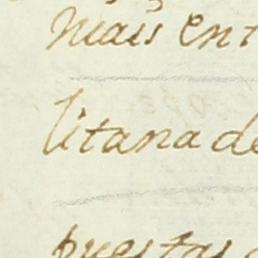 mais ent
litana de
puestas